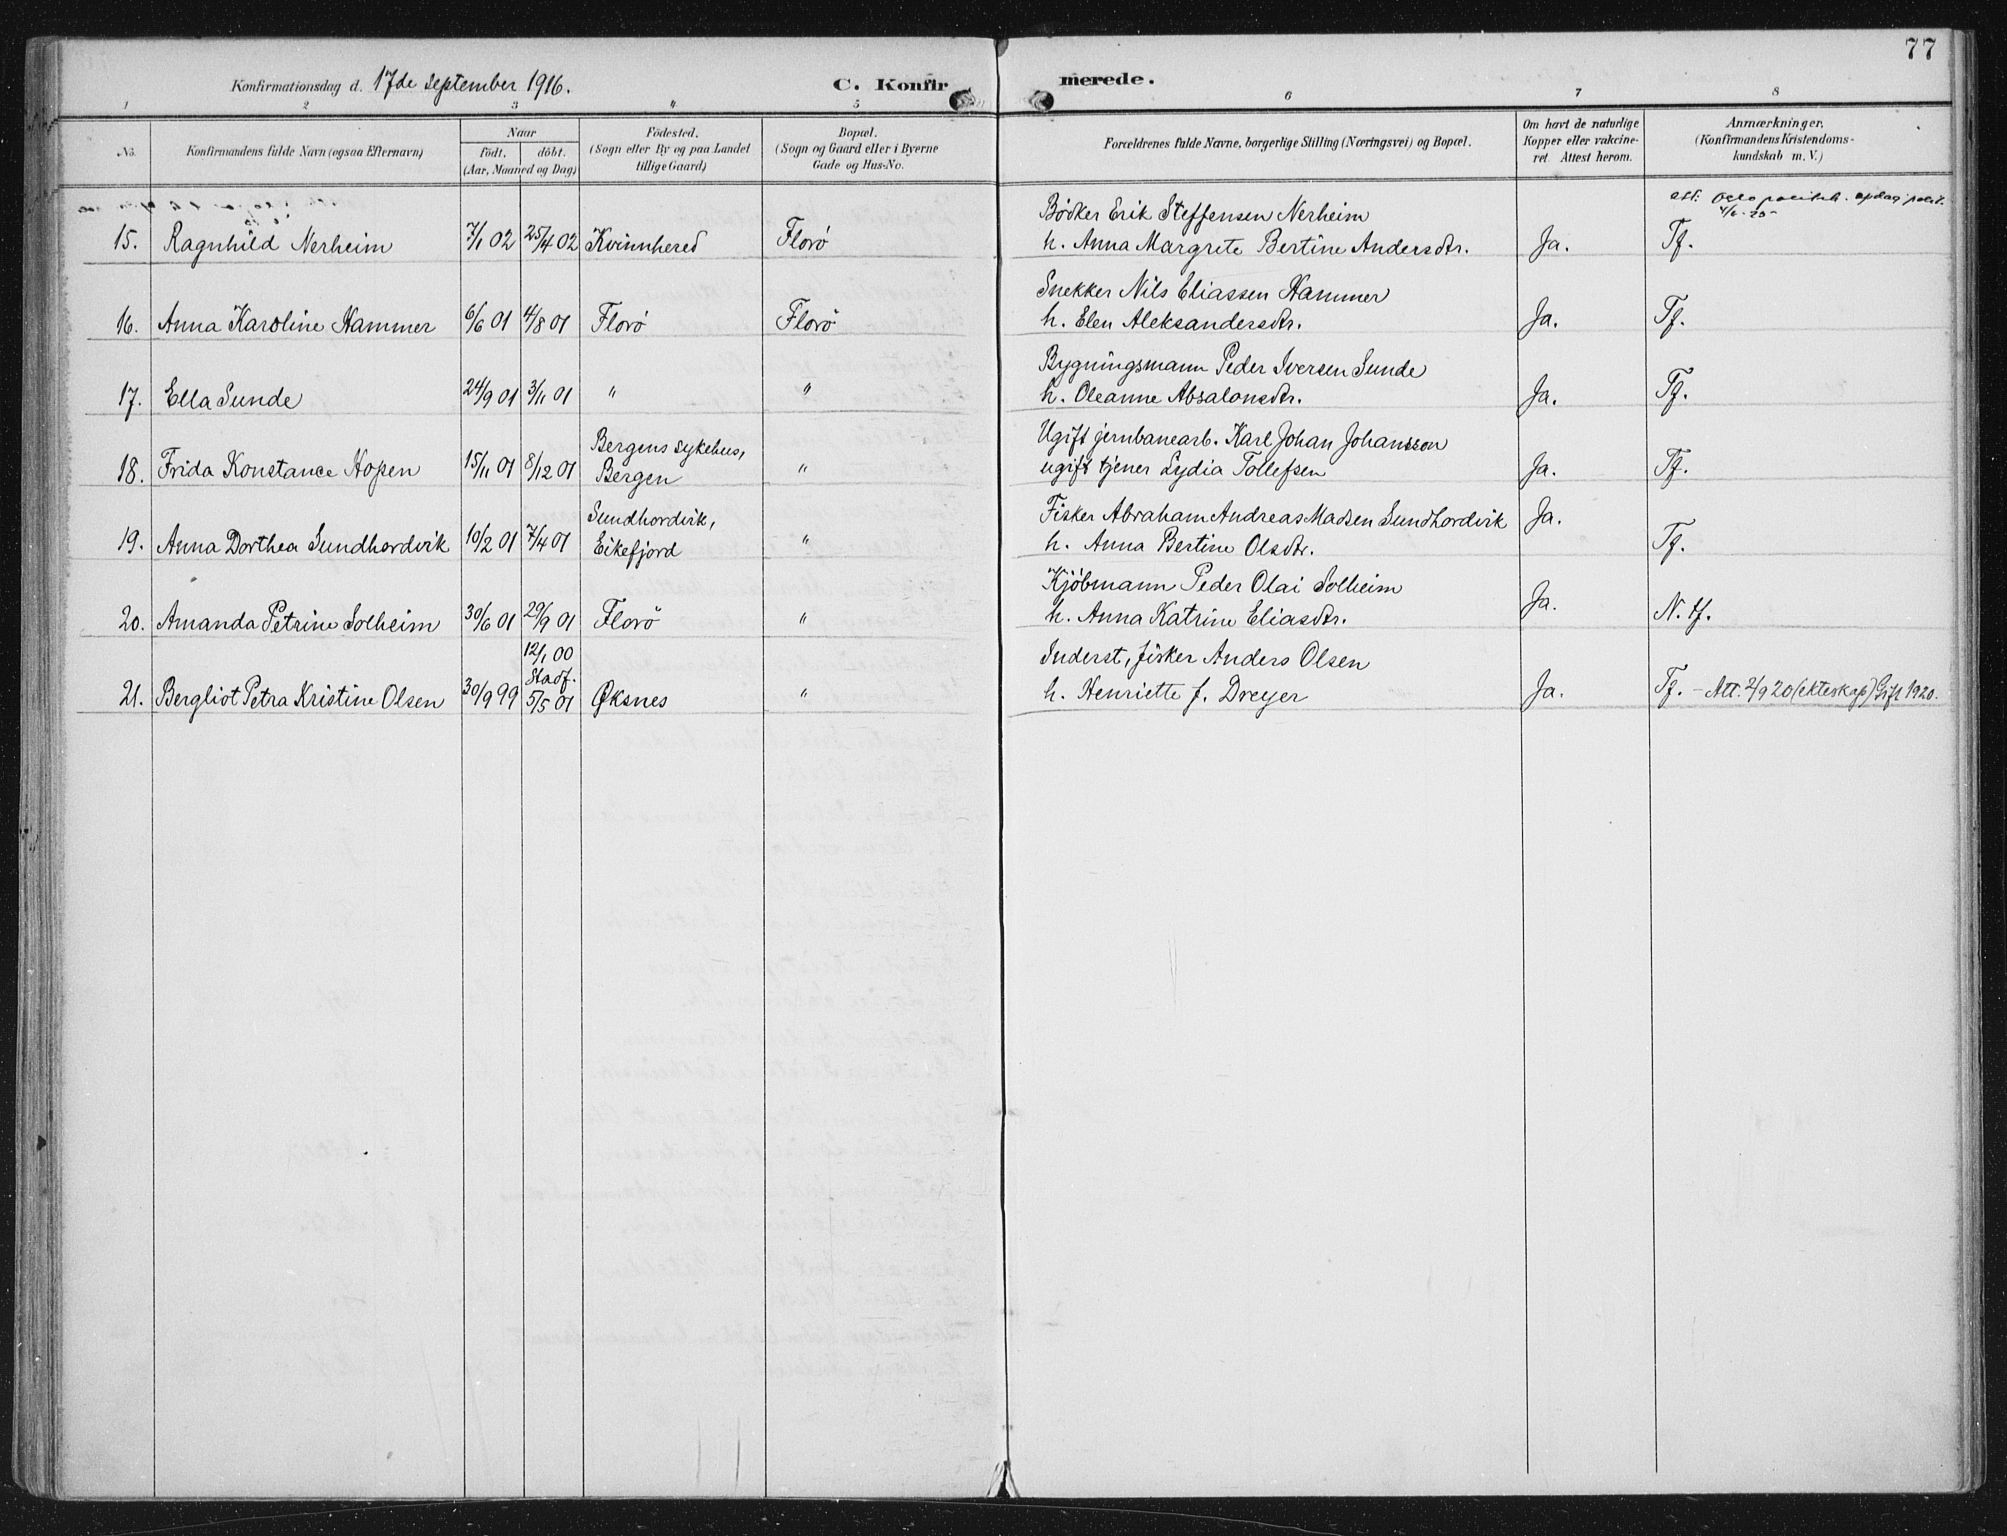 77
Konfirmationsdag d. 17de september 1916. C. Konfirmerede.
1 2 3 4 5 6 7 8
No. Konfirmandens fulde Navn (ogsaa Efternavn) Naar födt. döbt. (Aar, Maaned og Dag) Födested. (Sogn eller By og paa Landet tillige Gaard) Bopæl. (Sogn og Gaard eller i Byerne Gade og Hus-No. Forældrenes fulde Navne, borgerlige Stilling (Næringsvei) og Bopæl. Om havt de naturlige Kopper eller vakcineret. Attest herom. Anmærkninger. (Konfirmandens Kristendomskundskab m. V.)
att. Oslo politik.
Bödker Erik Steffensen Nerheim
15. Ragnhild Nerheim 7/1 02 25/4 02 Kvinnhered Florö h. Anna Margrete Bertine Andersdtr. Ja. Tf.
Snekker Nils Eliassen Hammer
16. Anna Karoline Hammer 6/6 01 4/8 01 Florö Florö h. Elen Aleksandersdtr. Ja. Tf.
Bygningsmann Peder Iversen Sunde
17. Ella Sunde 24/9 01 3/11 01 " " h. Oleanne Absalonsdtr. Ja. Tf.
Bergens sykehus, Ugift jernbanearb. Karl Johan Johansson
18. Frida Konstance Hopen 15/11 01 8/12 01 Bergen " ugift tjener Lydia Tollefsen Ja. Tf.
Sundhordvik, Fisker Abraham Andreas Madsen Sundhordvik Ja.
19. Anna Dorthea Sundhordvik 10/2 01 7/4 01 Eikefjord " h. Anna Bertine Olsdtr. Tf.
Kjöbmann Peder Olai Solheim
20. Amanda Petrine Solheim 30/6 01 29/9 01 Florö " h. Anna Katrine Eliasdtr. Ja. N. tf.
12/1 00 Inderst, fisker Anders Olsen
Stadf.
21. Bergliot Petra Kristine Olsen 30/9 99 5/5 01 Øksnes " h. Henriette f. Dreyer Ja. Tf. - Att. 2/9 20 (ekteskap) Gift 1920.